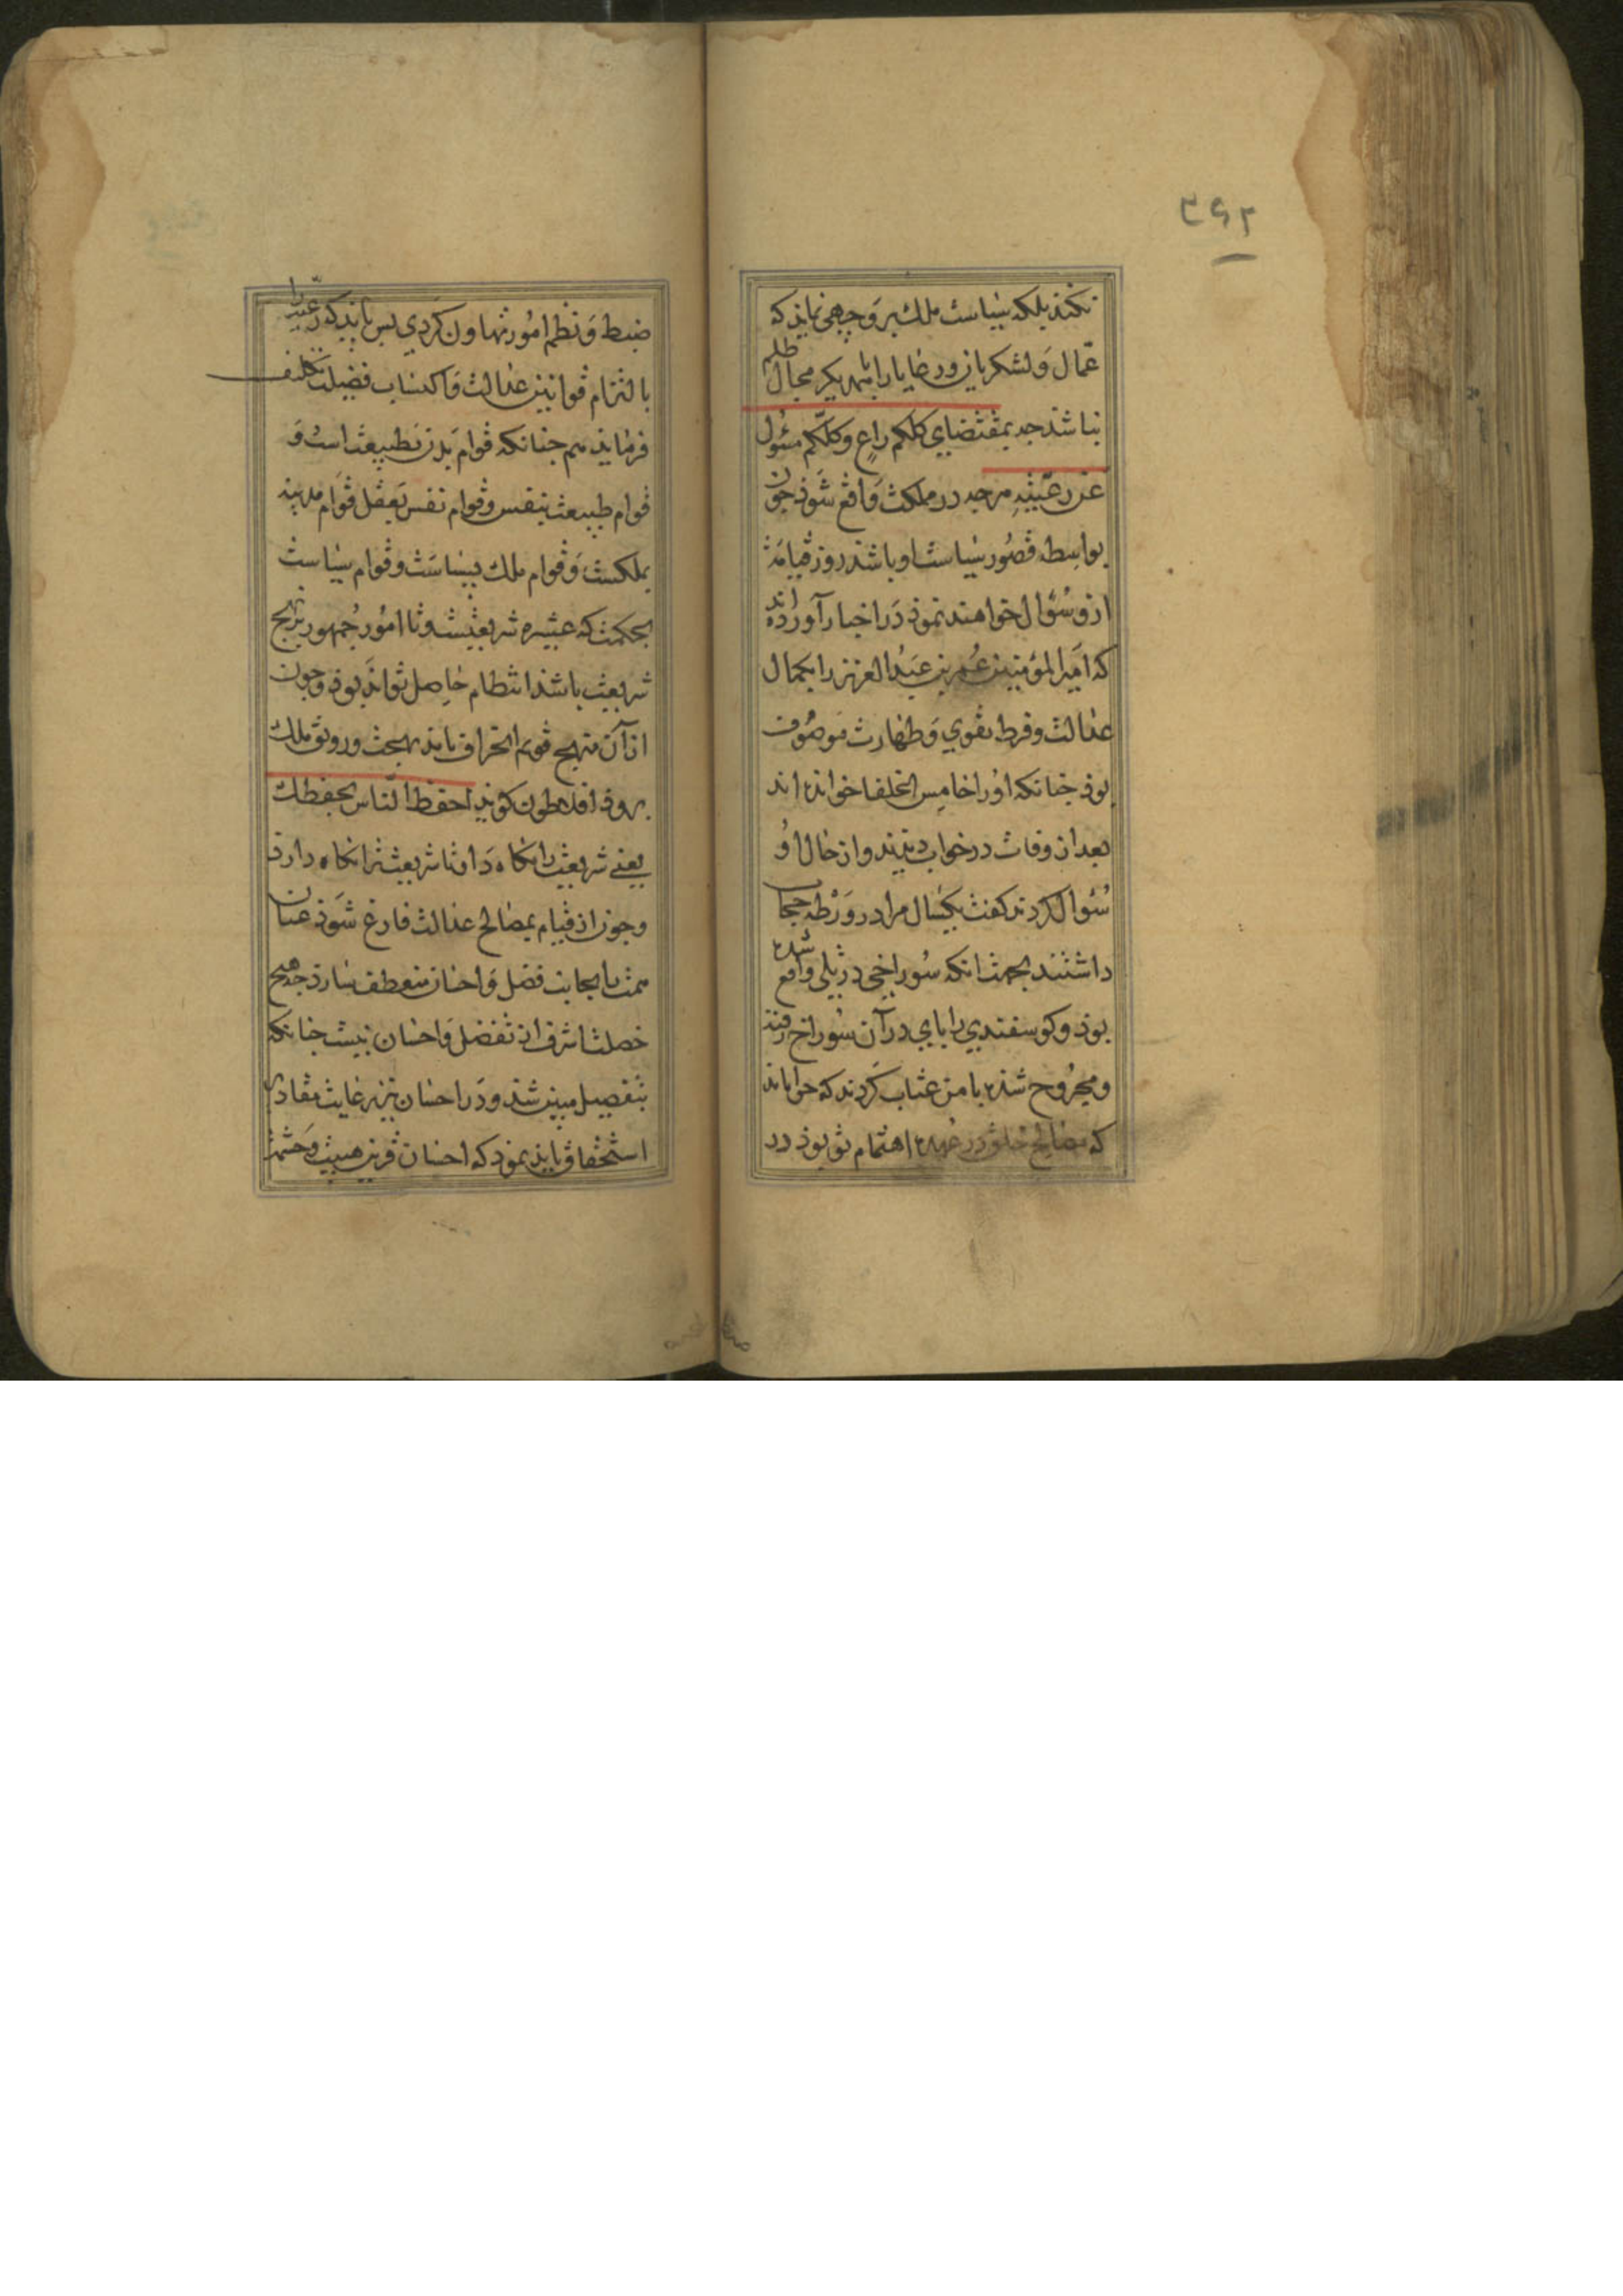 ۳۶۲
نکند بلکه سیاست ملک بر وجهی نماید که
عمّال و لشکریان و رعایا را بر یکدیکر مجال ظلم
نباشد جه بمقتضای کلکم راعٍ و کلّکم مسئول
عن رعیّتهِ هرجه در مملکت واقع شوذ جون
بواسطه قصُور سیاست او باشد روز قیامت
ازو سُؤال خواهند نموذ دَر اخبار آورده‌اند
که امیر المؤمنین عُمر بن عَبدُ العزیز را بکمال
عدالت و فرط تقوی و طهارت موصُوف
بوذ جنانکه اوُرا خامِس الخلفا خوانده اند
بعد از وفات در خواب دیدند و از حال اوُ
سُئوال کردند کفت یکسال مرا در وَرْطه حجاب
داشتند بجهت انکه سُوراخی در پلی واقع شده
بوذ و کوسفندی را پای در آن سُوراخ رفته
و مجرُوح شده با من عتاب کردند که جرا باید
که مصالح خلق در عهده اهتمام تو بوذ در
ضبط وَ نظم امُور تهاون کردی بس باید که رعیّت را
بالتزام قوانین عدالت وَ اکتساب فضیلت تکلیف
فرماید هم جنانکه قوام بَدن بَطبیعت است وَ
قوام طبیعت بنفس و قوام نفس بَعقل قوام مدینه
بملکست وَ قوام ملک بسیاسَت و قوام سیاست
بحکمت که عبتره شریعتست و تا امُور جُمهور بر نهج
شریعت باشد انتظام حاصِل تواند بوذ و جون
از آن منهج قویم انحراف یابد بهجت و رونق ملک
بروذ افلاطون کوید احفظ النّاس یحفظک
یعنی شریعت را نکاه دَار تا شریعت ترا نکاه دارذ
و جون از قیام بمصالح عدالت فارغ شَوذ عنان
همت با بجانب فضل وَ احسان منعطف سازد جه هیج
خصلت اشرف از تفضل وَ احسان نیست جنانکه
بتفصیل مبین شد و دَر احسان نیز رعایت مقادیر
استحقاق باید نمود که احسان قرین هیبت وَ حشمت